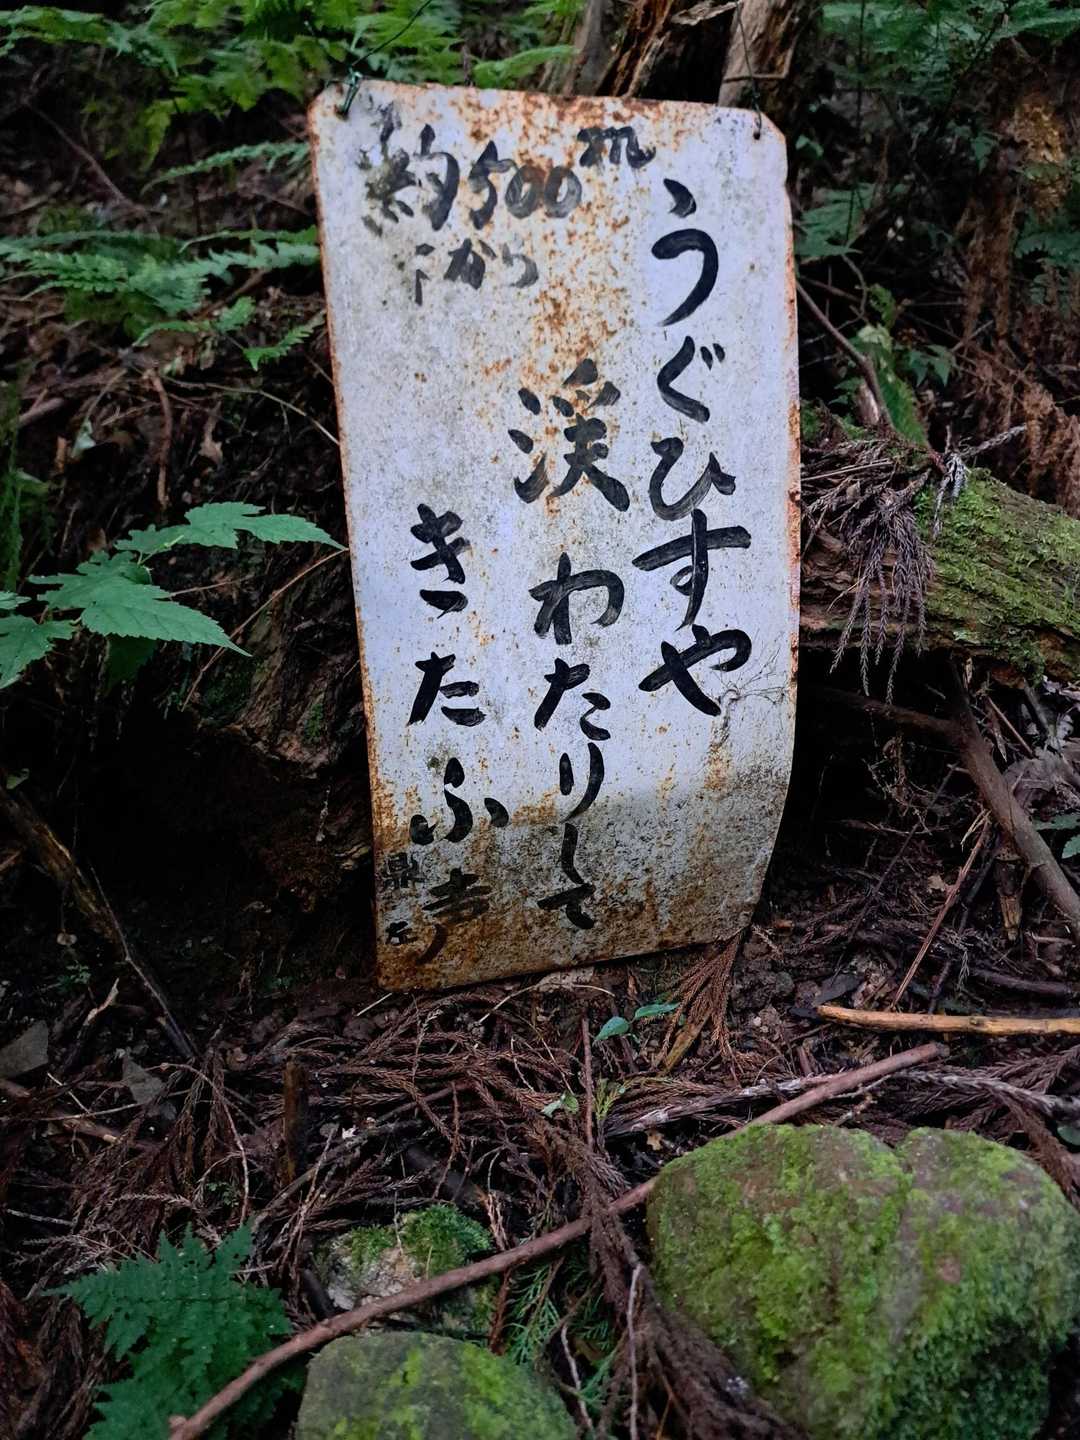 うぐひすや
渓わたりして
きたふ声
約500m
から